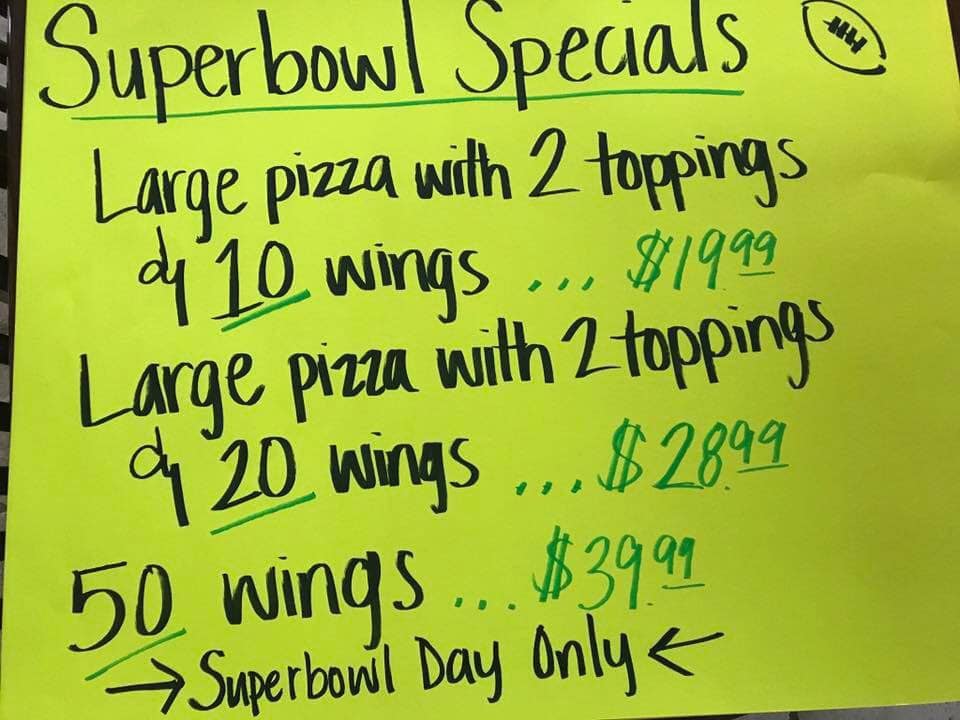 Superbowl Specials
Large pizza with 2 toppings
& 10 wings ... $19.99
Large pizza with 2 toppings
& 20 wings ... $28.99
50 wings ... $39.99
→ Superbowl Day Only ←